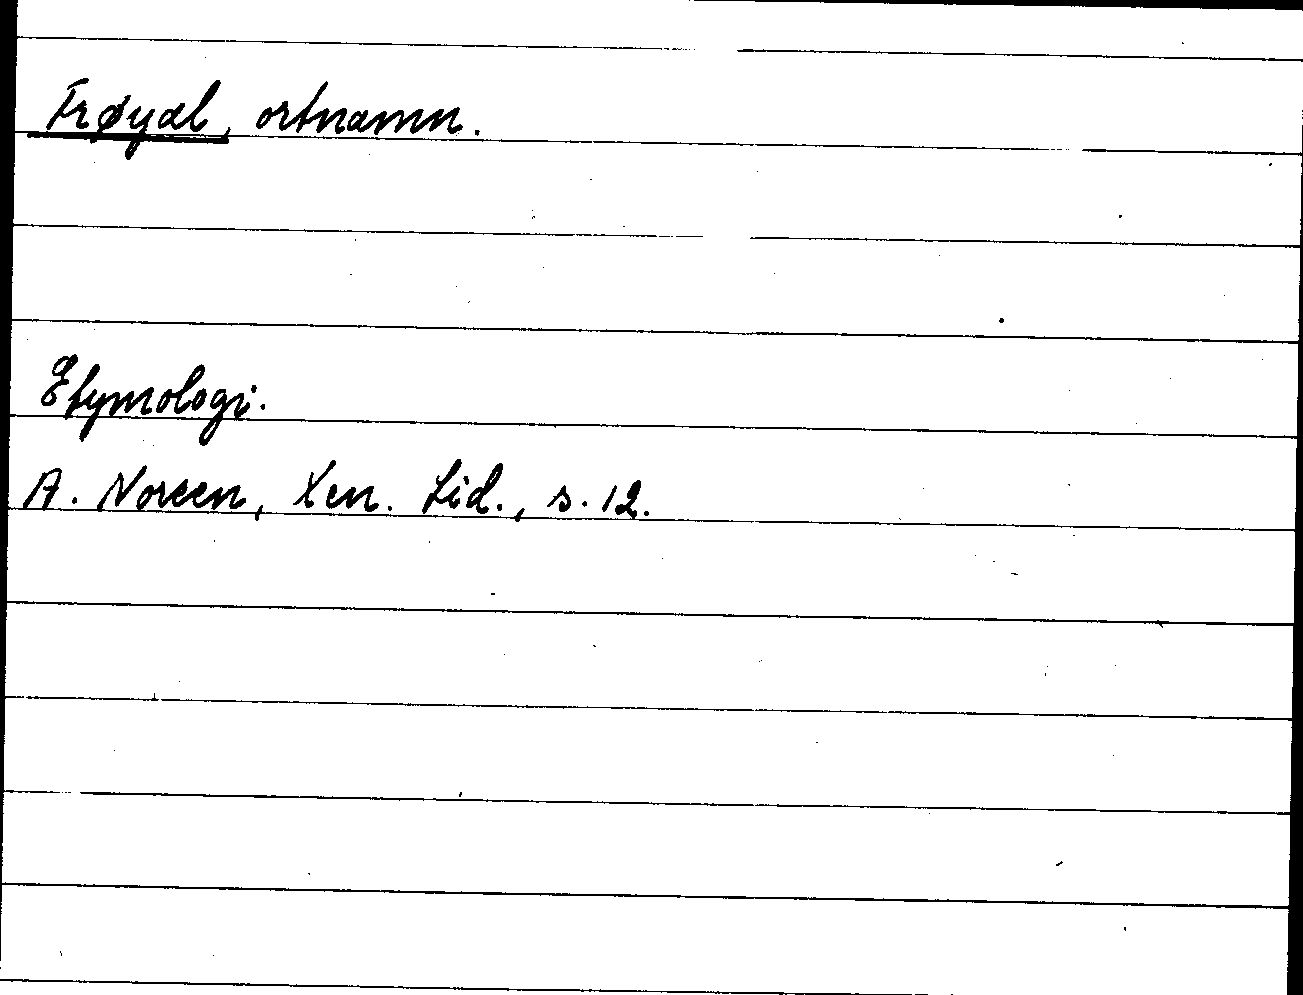 Frøyal, ortnamn.
Etymologi.
A. Noreen, Xen. Lid., s. 12.